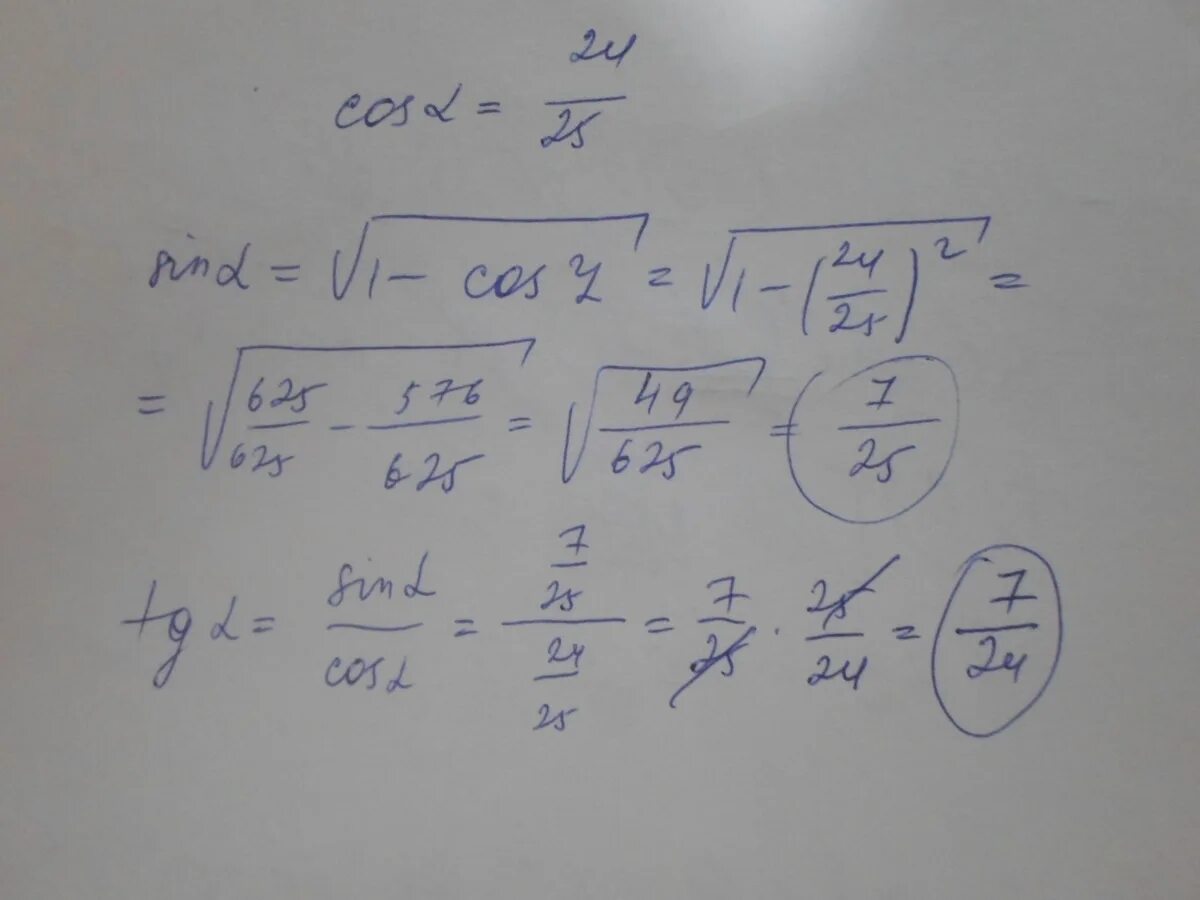 cos α = 24/25
sin α = √(1 - cos 2) = √(1 - (24/25)²) =
= √(625/625 - 576/625) = √(49/625) = 7/25
tg α = sin α/cos α = (7/25)/(24/25) = 7/25 · 25/24 = 7/24